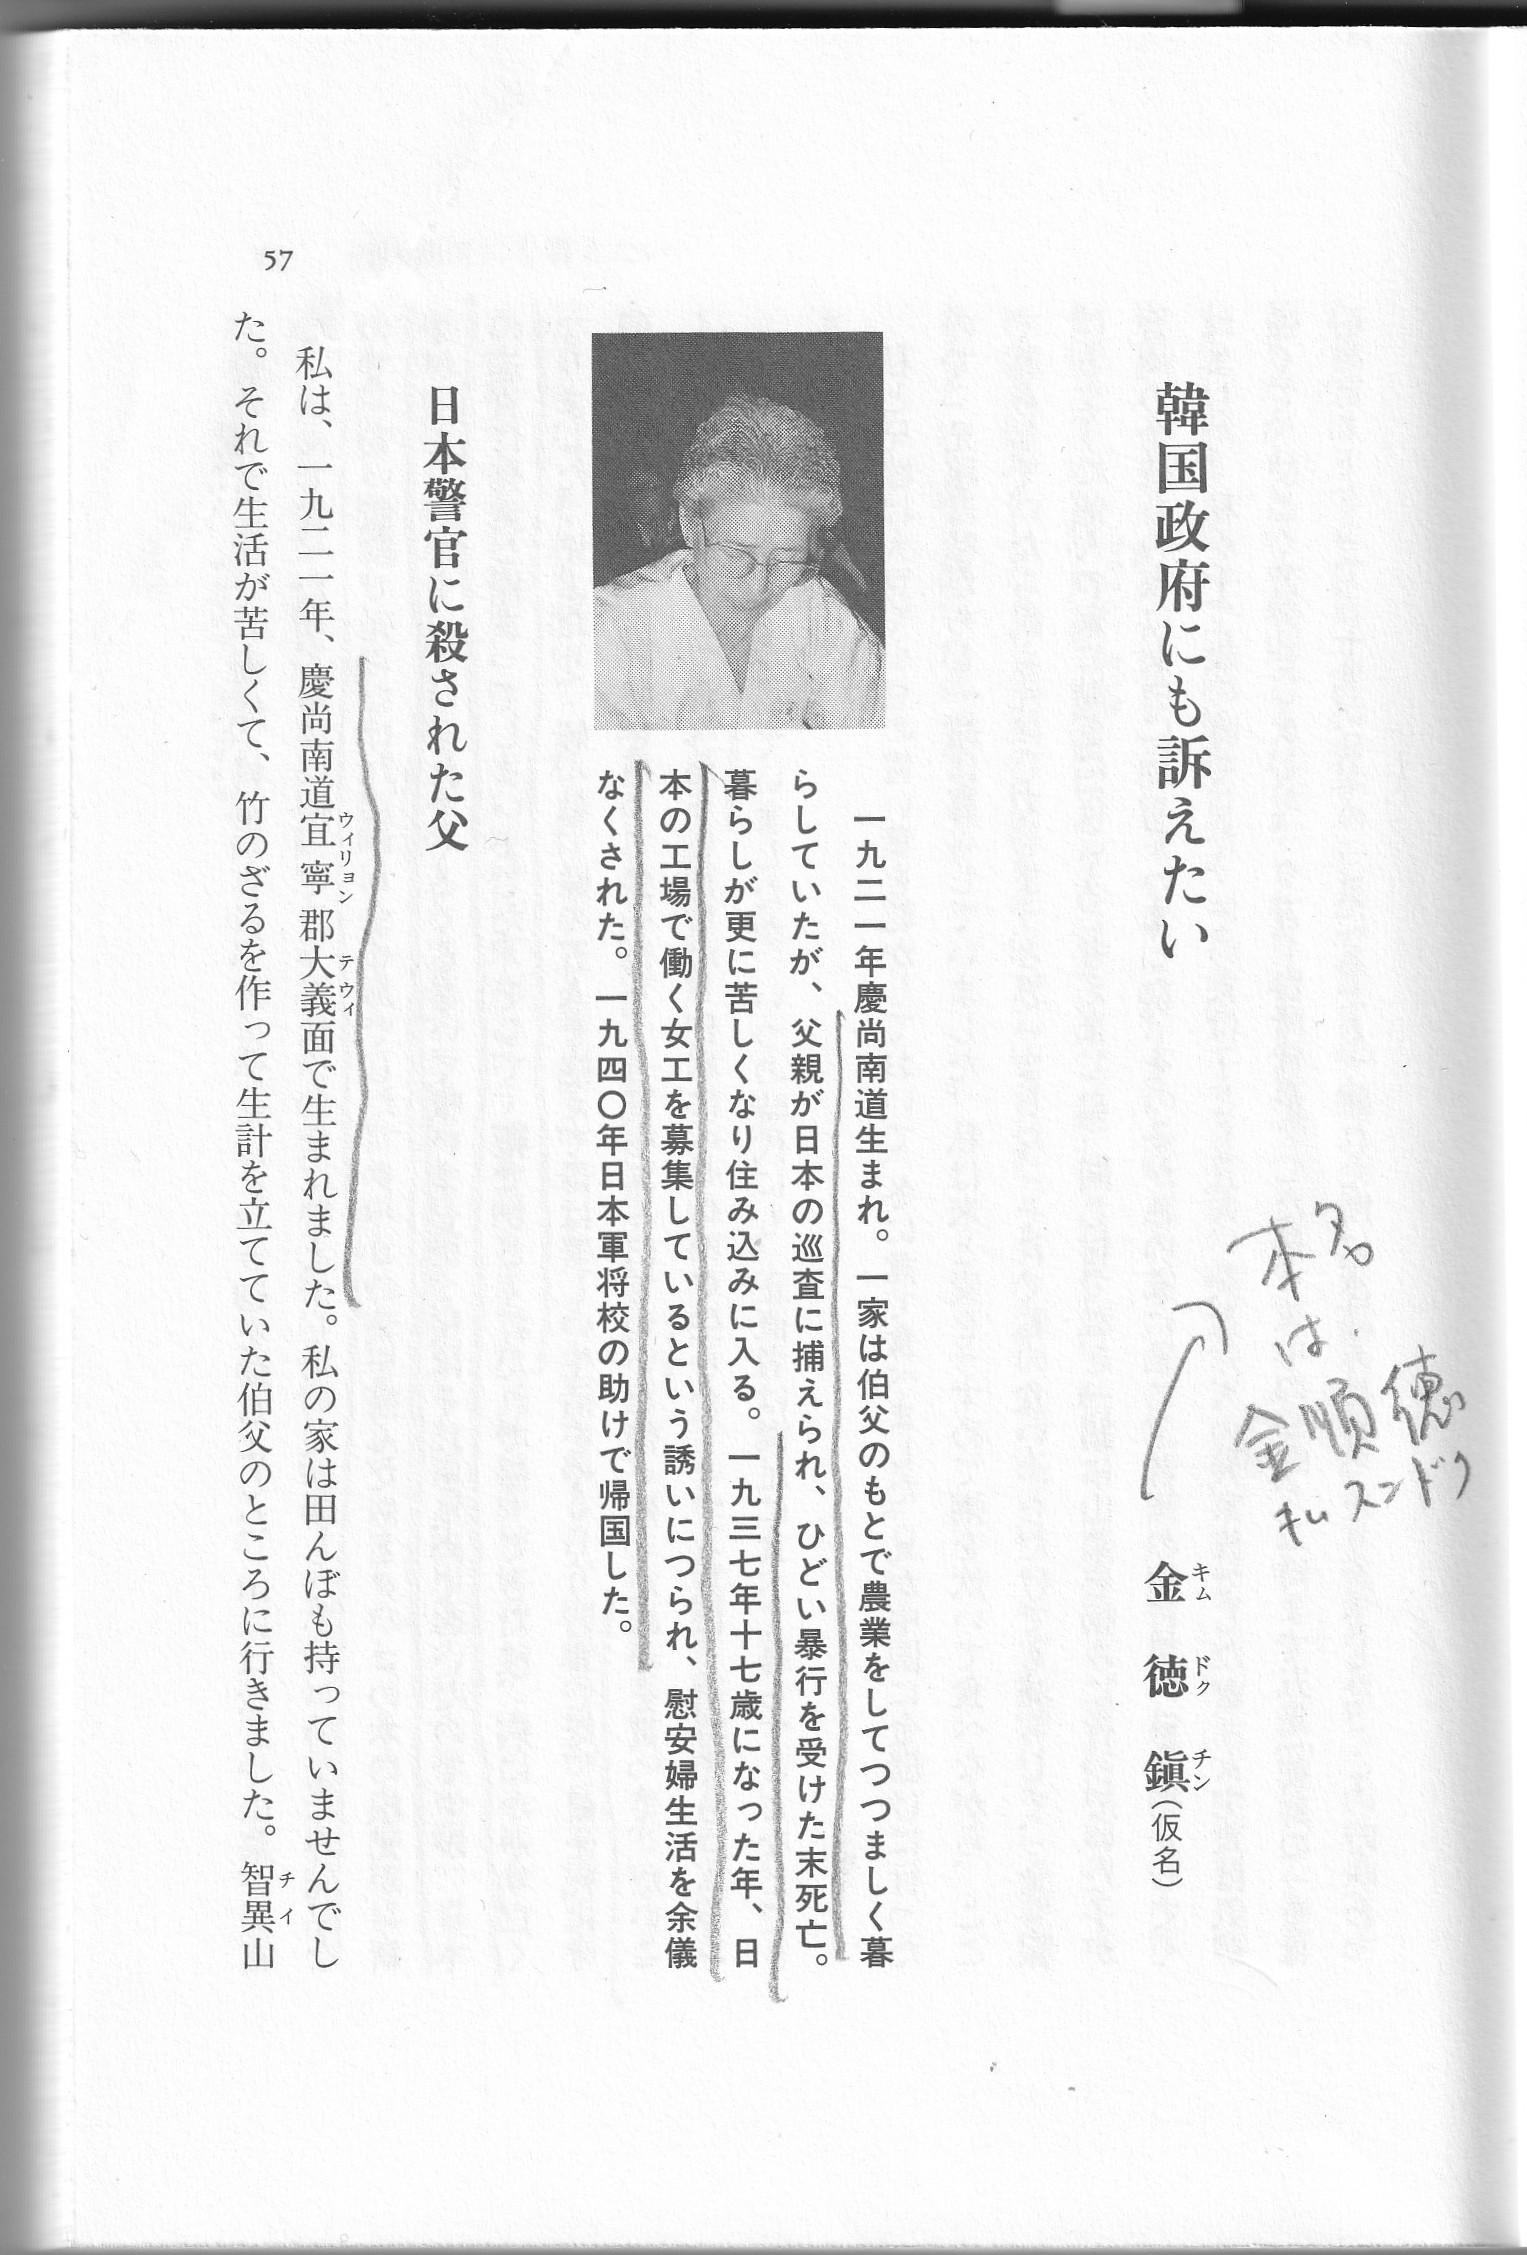 韓国政府にも訴えたい
本名
は
金順徳
キムスンドク
金徳鎭(仮名)
キム ドク チン
一九二一年慶尚南道生まれ。一家は伯父のもとで農業をしてつつましく暮
らしていたが、父親が日本の巡査に捕えられ、ひどい暴行を受けた末死亡。
暮らしが更に苦しくなり住み込みに入る。一九三七年十七歳になった年、日
本の工場で働く女工を募集しているという誘いにつられ、慰安婦生活を余儀
なくされた。一九四〇年日本軍将校の助けで帰国した。
日本警官に殺された父
私は、一九二一年、慶尚南道宜寧郡大義面で生まれました。私の家は田んぼも持っていませんでし
ウィリョン テウィ
た。それで生活が苦しくて、竹のざるを作って生計を立てていた伯父のところに行きました。智異山
チイ
57